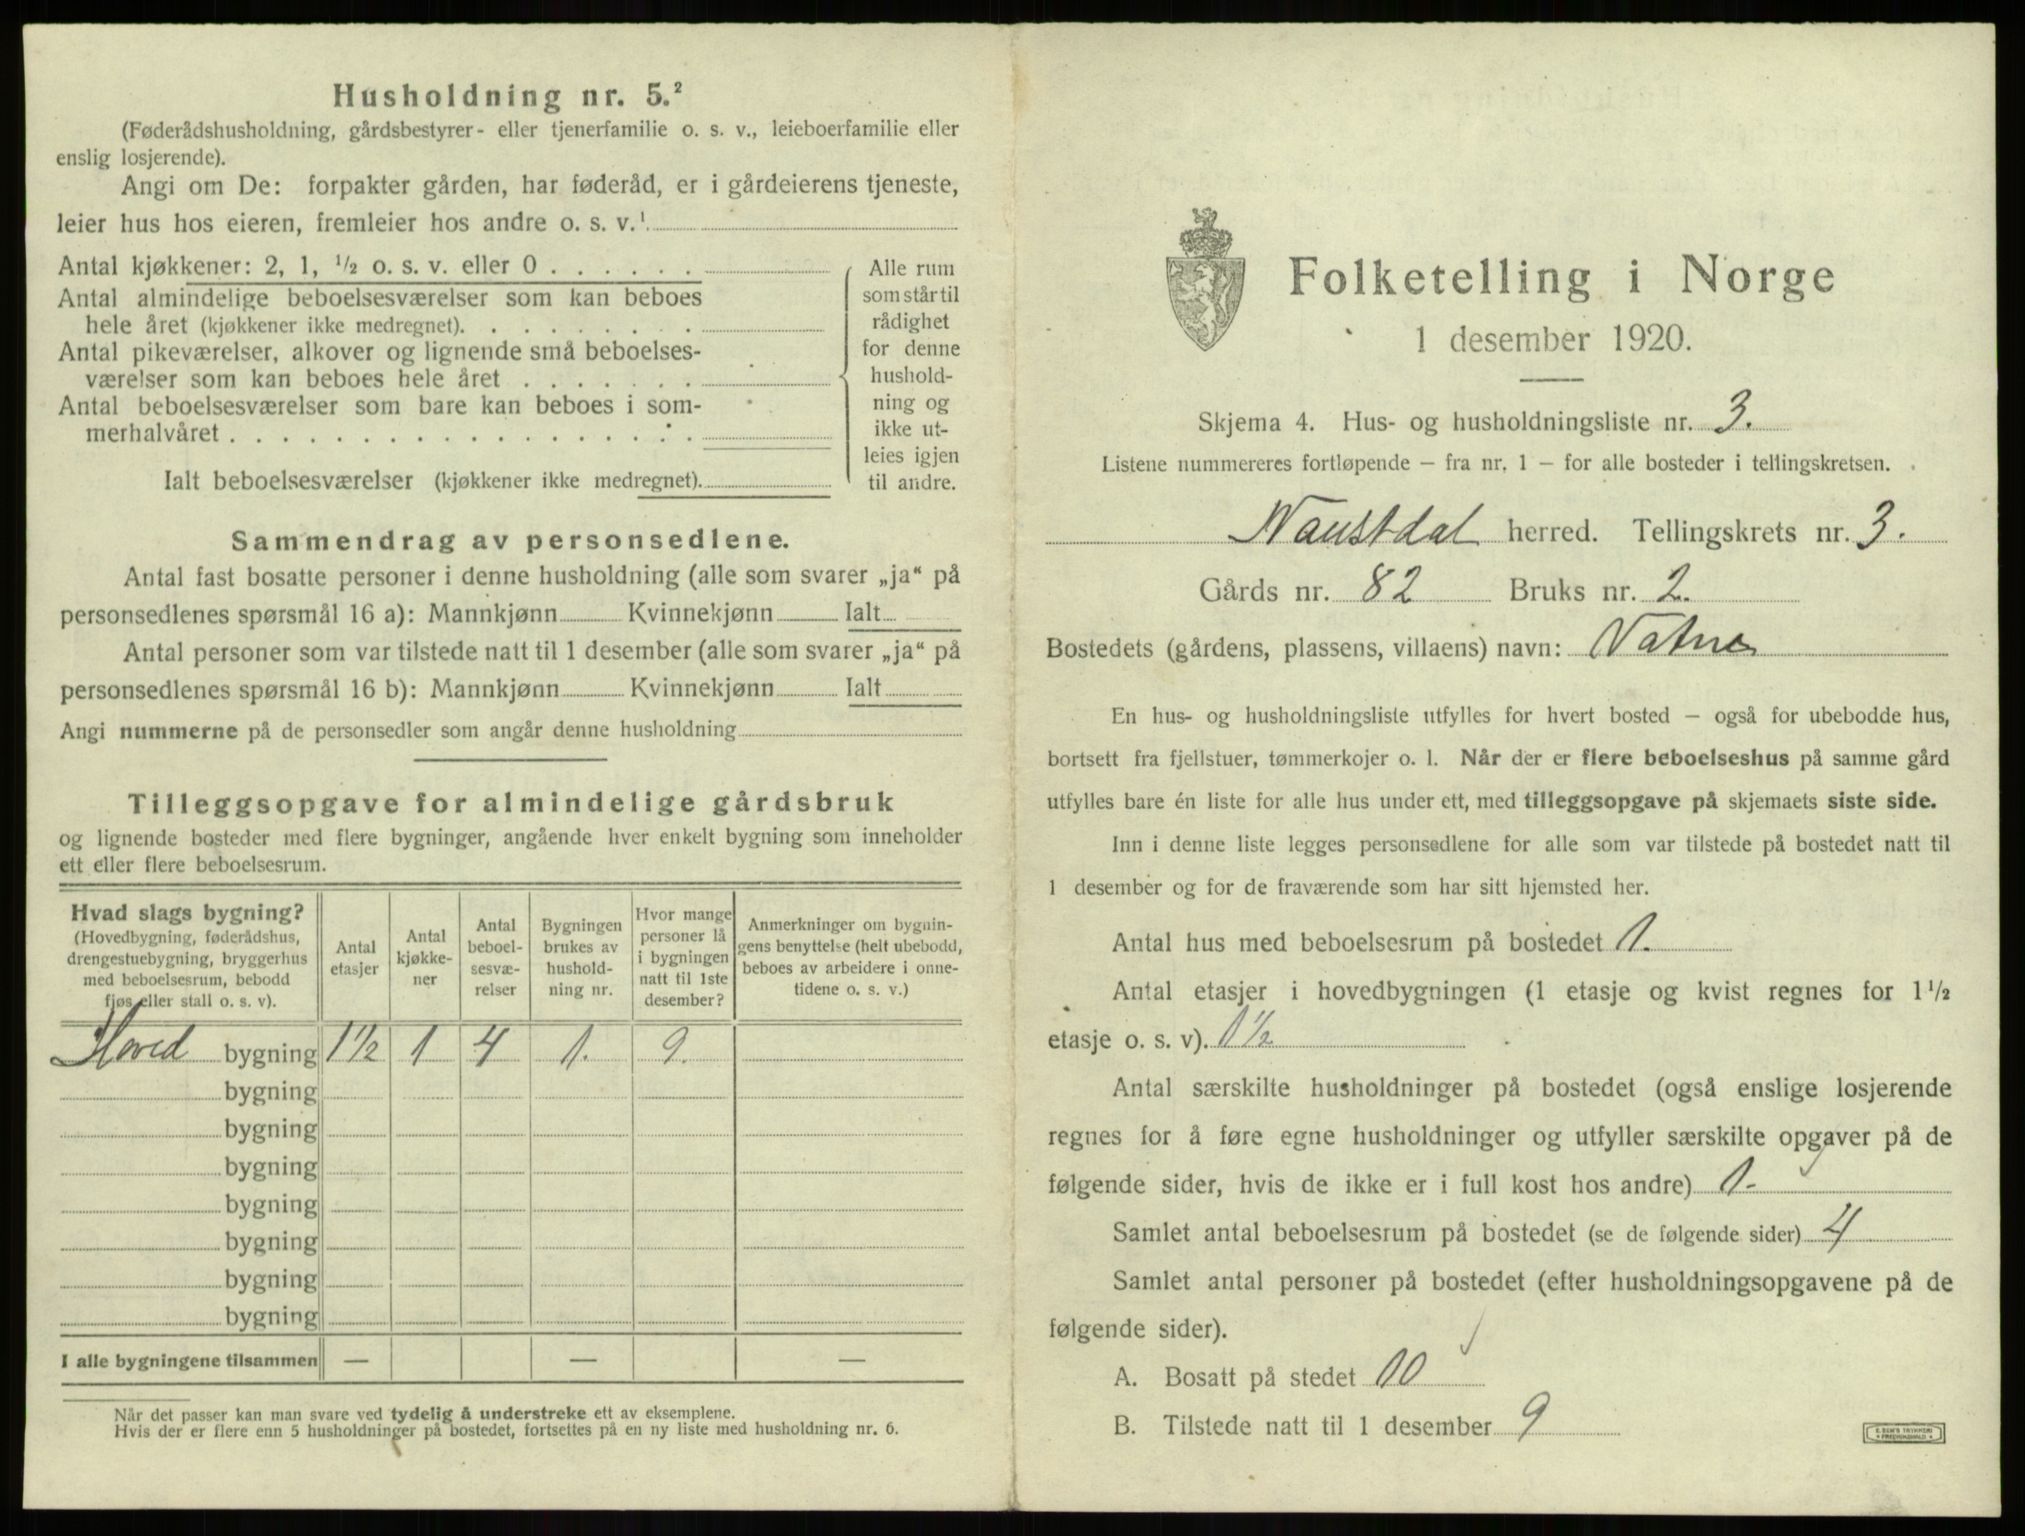 Husholdning nr. 5.²
(Føderådshusholdning, gårdsbestyrer- eller tjenerfamilie o. s. v., leieboerfamilie eller
enslig losjerende).
Angi om De: forpakter gården, har føderåd, er i gårdeierens tjeneste,
leier hus hos eieren, fremleier hos andre o. s. v.¹
Antal kjøkkener: 2, 1, ½ o. s. v. eller 0 . . . . . .
Antal almindelige beboelsesværelser som kan beboes
hele året (kjøkkener ikke medregnet). . . . . . . . .
Antal pikeværelser, alkover og lignende små beboelses-
værelser som kan beboes hele året . . . . . . .
Antal beboelsesværelser som bare kan beboes i som-
merhalvåret . . . . . . . . . . . . . . . . . .
Ialt beboelsesværelser (kjøkkener ikke medregnet).
Alle rum
som står til
rådighet
for denne
hushold-
ning og
ikke ut-
leies igjen
til andre.
Sammendrag av personsedlene.
Antal fast bosatte personer i denne husholdning (alle som svarer „ja“ på
personsedlenes spørsmål 16 a): Mannkjønn Kvinnekjønn Ialt
Antal personer som var tilstede natt til 1 desember (alle som svarer „ja“ på
personsedlenes spørsmål 16 b): Mannkjønn Kvinnekjønn Ialt
Angi nummerne på de personsedler som angår denne husholdning
Tilleggsopgave for almindelige gårdsbruk
og lignende bosteder med flere bygninger, angående hver enkelt bygning som inneholder
ett eller flere beboelsesrum.
Hvad slags bygning?
(Hovedbygning, føderådshus,
drengestuebygning, bryggerhus
med beboelsesrum, bebodd
fjøs eller stall o. s. v).
Antal
etasjer
Antal
kjøkke-
ner
Antal
beboel-
sesvæ-
relser
Bygningen
brukes av
hushold-
ning nr.
Hvor mange
personer lå
i bygningen
natt til 1ste
desember?
Anmerkninger om bygnin-
gens benyttelse (helt ubebodd,
beboes av arbeidere i onne-
tidene o. s. v.)
Hoved bygning 1½ 1 4 1. 9.
bygning
bygning
bygning
bygning
bygning
bygning
bygning
I alle bygningene tilsammen — — —
Når det passer kan man svare ved tydelig å understreke ett av eksemplene.
Hvis der er flere enn 5 husholdninger på bostedet, fortsettes på en ny liste med husholdning nr. 6.
Folketelling i Norge
1 desember 1920.
Skjema 4. Hus- og husholdningsliste nr. 3.
Listene nummereres fortløpende – fra nr. 1 – for alle bosteder i tellingskretsen.
Naustdal herred. Tellingskrets nr. 3.
Gårds nr. 82 Bruks nr. 2.
Bostedets (gårdens, plassens, villaens) navn: Vatne
En hus- og husholdningsliste utfylles for hvert bosted – også for ubebodde hus,
bortsett fra fjellstuer, tømmerkojer o. l. Når der er flere beboelseshus på samme gård
utfylles bare én liste for alle hus under ett, med tilleggsopgave på skjemaets siste side.
Inn i denne liste legges personsedlene for alle som var tilstede på bostedet natt til
1 desember og for de fraværende som har sitt hjemsted her.
Antal hus med beboelsesrum på bostedet 1.
Antal etasjer i hovedbygningen (1 etasje og kvist regnes for 1½
etasje o. s. v). 1½
Antal særskilte husholdninger på bostedet (også enslige losjerende
regnes for å føre egne husholdninger og utfyller særskilte opgaver på de
følgende sider, hvis de ikke er i full kost hos andre) 1.
Samlet antal beboelsesrum på bostedet (se de følgende sider) 4
Samlet antal personer på bostedet (efter husholdningsopgavene på de
følgende sider).
A. Bosatt på stedet 10
B. Tilstede natt til 1 desember 9